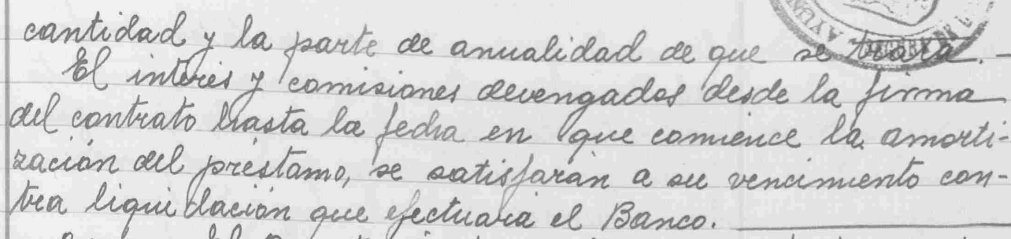 cantidad y la parte de anualidad de que se trata. -
El interés y comisiones devengados desde la firma
del contrato hasta la fecha en que comience la amorti-
zación del préstamo, se satisfarán a su vencimiento con-
tra liquidación que efectuará el Banco.